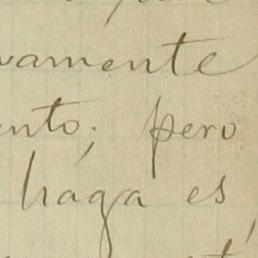 vamente
ento; pero
haga es